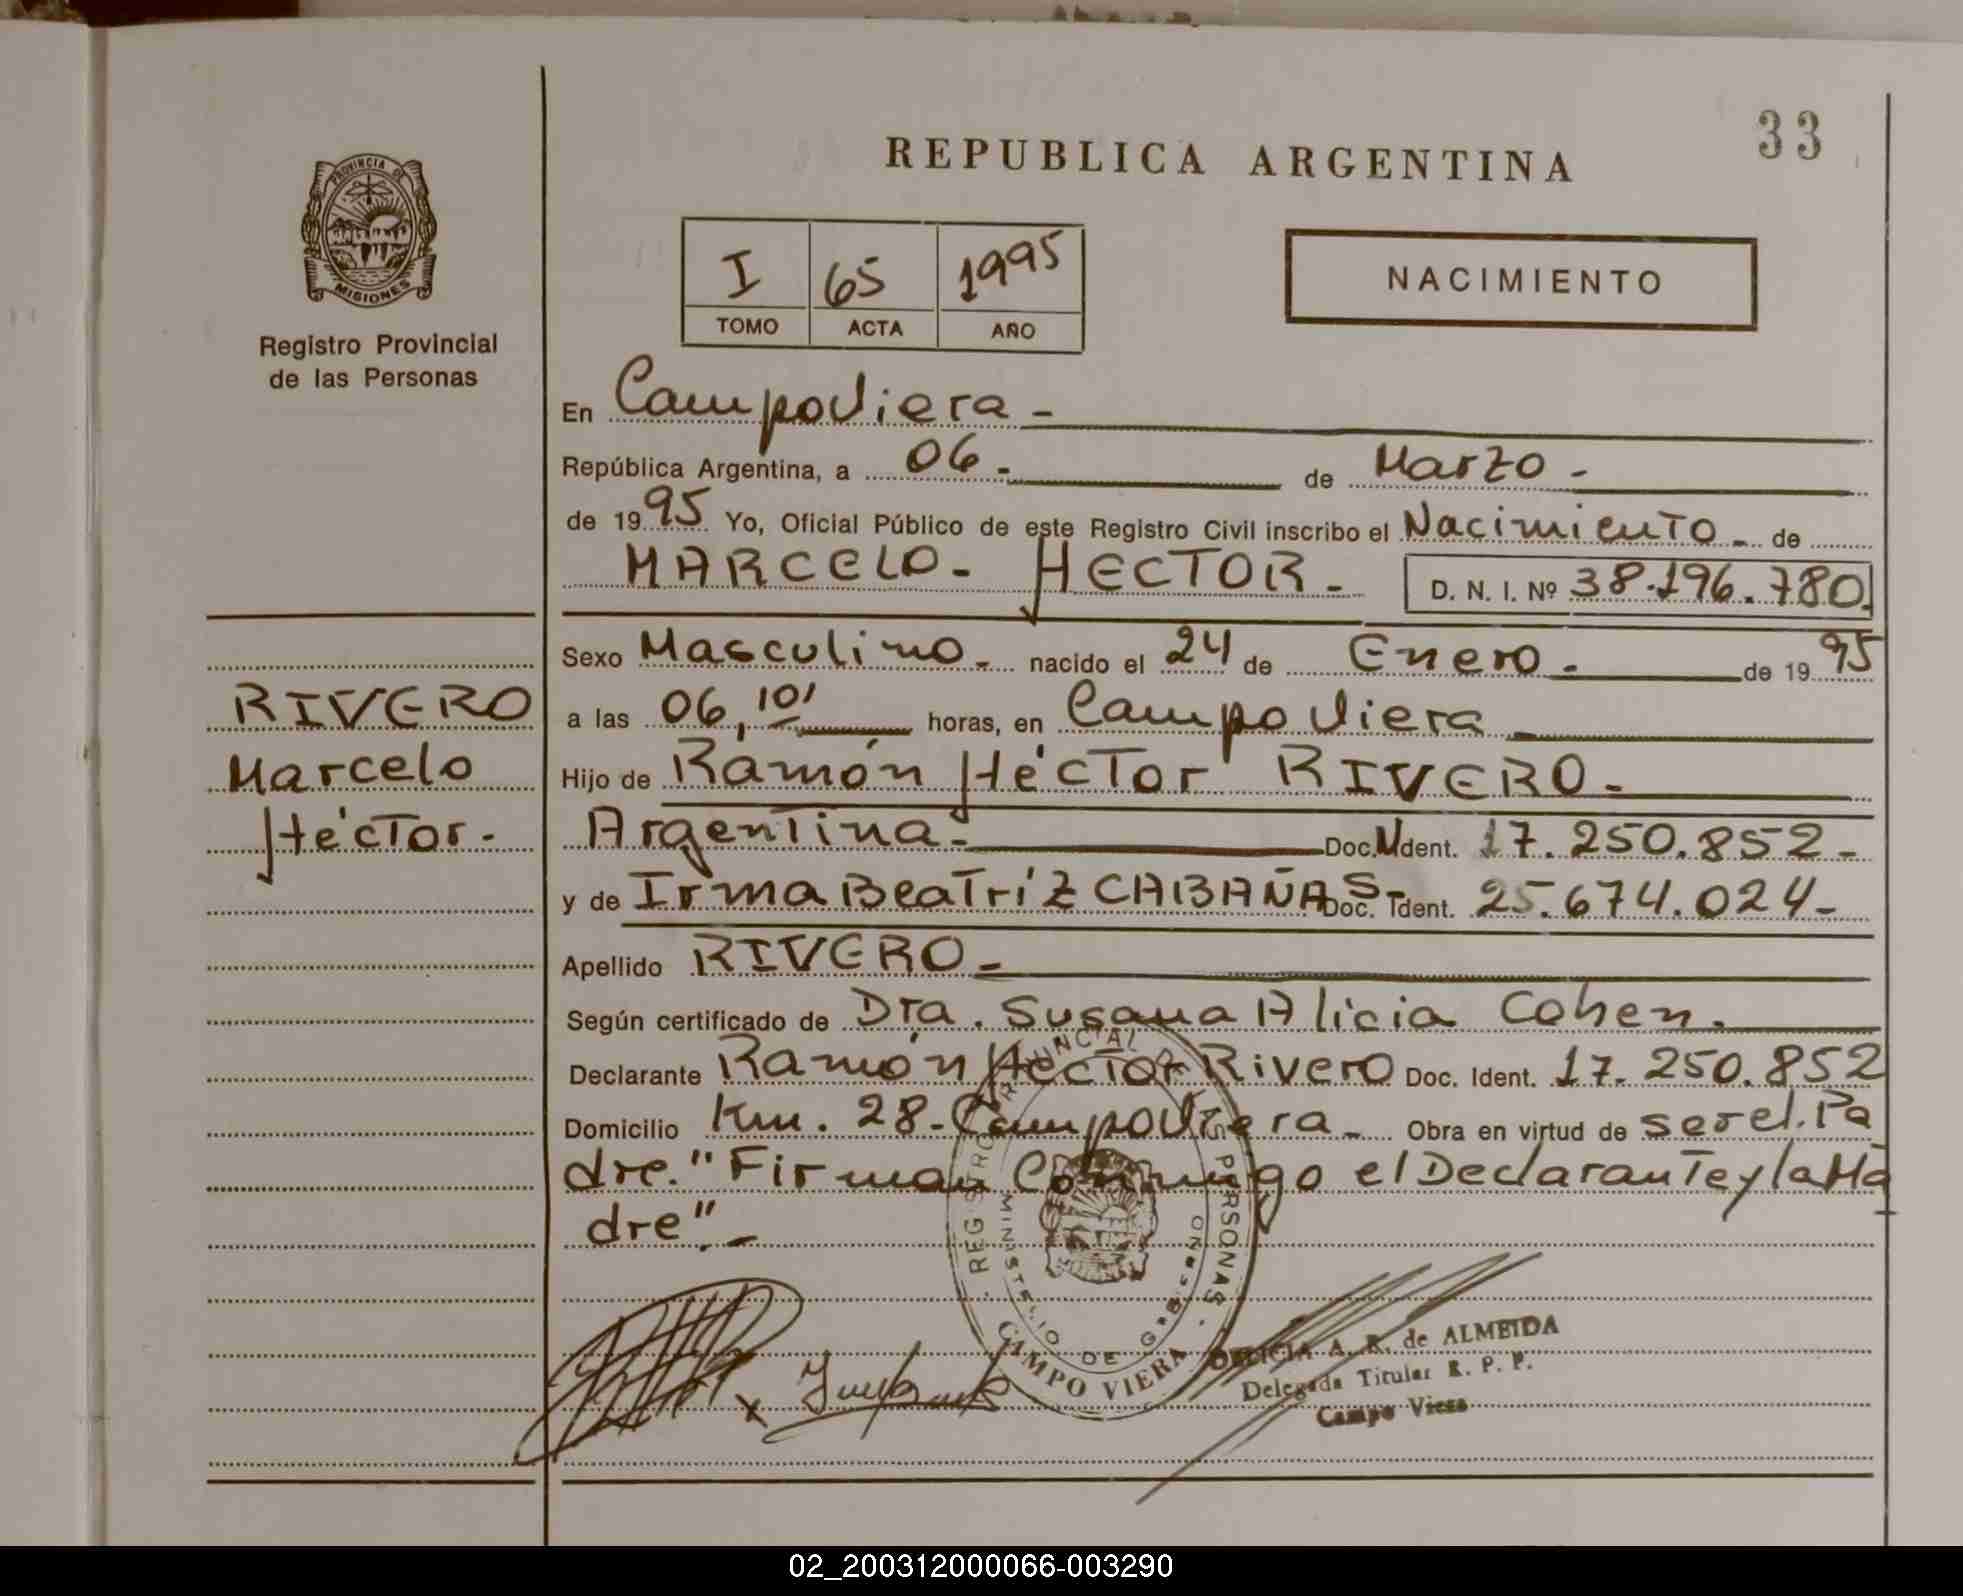 33
REPUBLICA ARGENTINA
PROVINCIA DE
MISIONES
Registro Provincial
de las Personas
I 65 1995
TOMO ACTA AÑO
NACIMIENTO
En Campo Viera -
República Argentina, a 06 - de Marzo -
de 1995 Yo, Oficial Público de este Registro Civil inscribo el Nacimiento - de
MARCELO - HECTOR - D. N. I. Nº 38.196.780.
Sexo Masculino - nacido el 24 de Enero - de 1995
a las 06,10' horas, en Campo Viera
Hijo de Ramón Héctor RIVERO -
Argentina - Doc. Ident. 17.250.852 -
y de Irma Beatríz CABAÑAS - Doc. Ident. 25.674.024 -
Apellido RIVERO -
Según certificado de Dra. Susana Alicia Cohen.
Declarante Ramón Héctor Rivero Doc. Ident. 17.250.852
Domicilio Km. 28 - Campo Viera - Obra en virtud de ser el Pa
dre. "Firman Conmigo el Declarante y la Ma
dre" -
RIVERO
Marcelo
Héctor -
REGISTRO PROVINCIAL DE LAS PERSONAS
MINISTERIO DE GOBIERNO
CAMPO VIERA
A. R. de ALMEIDA
Delegada Titular R. P. P.
Campo Viera
02_200312000066-003290